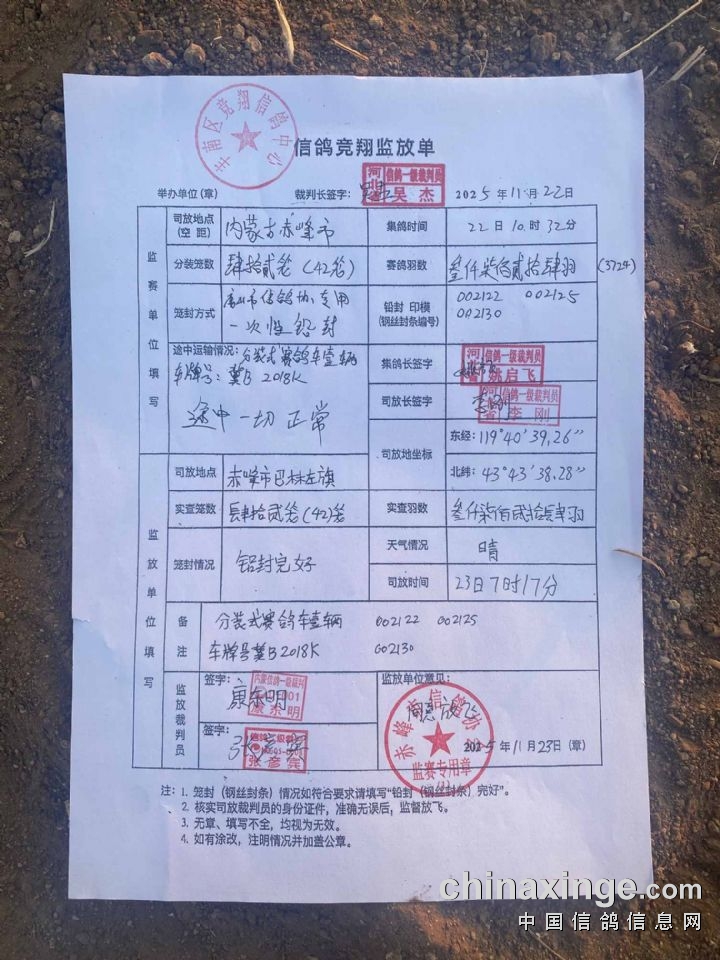 丰南区竞翔信鸽中心
信鸽竞翔监放单
举办单位(章) 裁判长签字: 河北省 信鸽一级裁判员 吴杰 2025年11月22日
监赛单位填写
司放地点(空距) 内蒙古赤峰市 集鸽时间 22日10时32分
分装笼数 肆拾贰笼(42笼) 赛鸽羽数 叁仟柒佰贰拾肆羽 (3724)
笼封方式 唐山市信鸽协专用一次性铅封 铅封 印模(钢丝封条编号) 002122 002125 002130
途中运输情况: 分装式赛鸽车壹辆
车牌号: 冀B 2018K
途中一切正常
集鸽长签字 河北省 信鸽一级裁判员 姚启飞
司放长签字 李刚 河北省 信鸽一级裁判员 李刚
司放地坐标 东经: 119°40′39.26″
北纬: 43°43′38.28″
监放单位填写
司放地点 赤峰市巴林左旗
实查笼数 肆拾贰笼(42)笼 实查羽数 叁仟柒佰贰拾肆羽
笼封情况 铅封完好 天气情况 晴
司放时间 23日7时17分
备注 分装式赛鸽车壹辆 002122 002125
车牌号冀B2018K 002130
监放裁判员
签字: 康东明 内蒙信鸽一级裁判 康东明
签字: 张彦宾 信鸽一级裁判 张彦宾
监放单位意见:
同意放飞
赤峰市信鸽协会 监赛专用章
2025年11月23日(章)
注: 1. 笼封(钢丝封条)情况如符合要求请填写“铅封(钢丝封条)完好”。
2. 核实司放裁判员的身份证件,准确无误后,监督放飞。
3. 无章、填写不全,均视为无效。
4. 如有涂改,注明情况并加盖公章。
chinaxinge.com
中国信鸽信息网